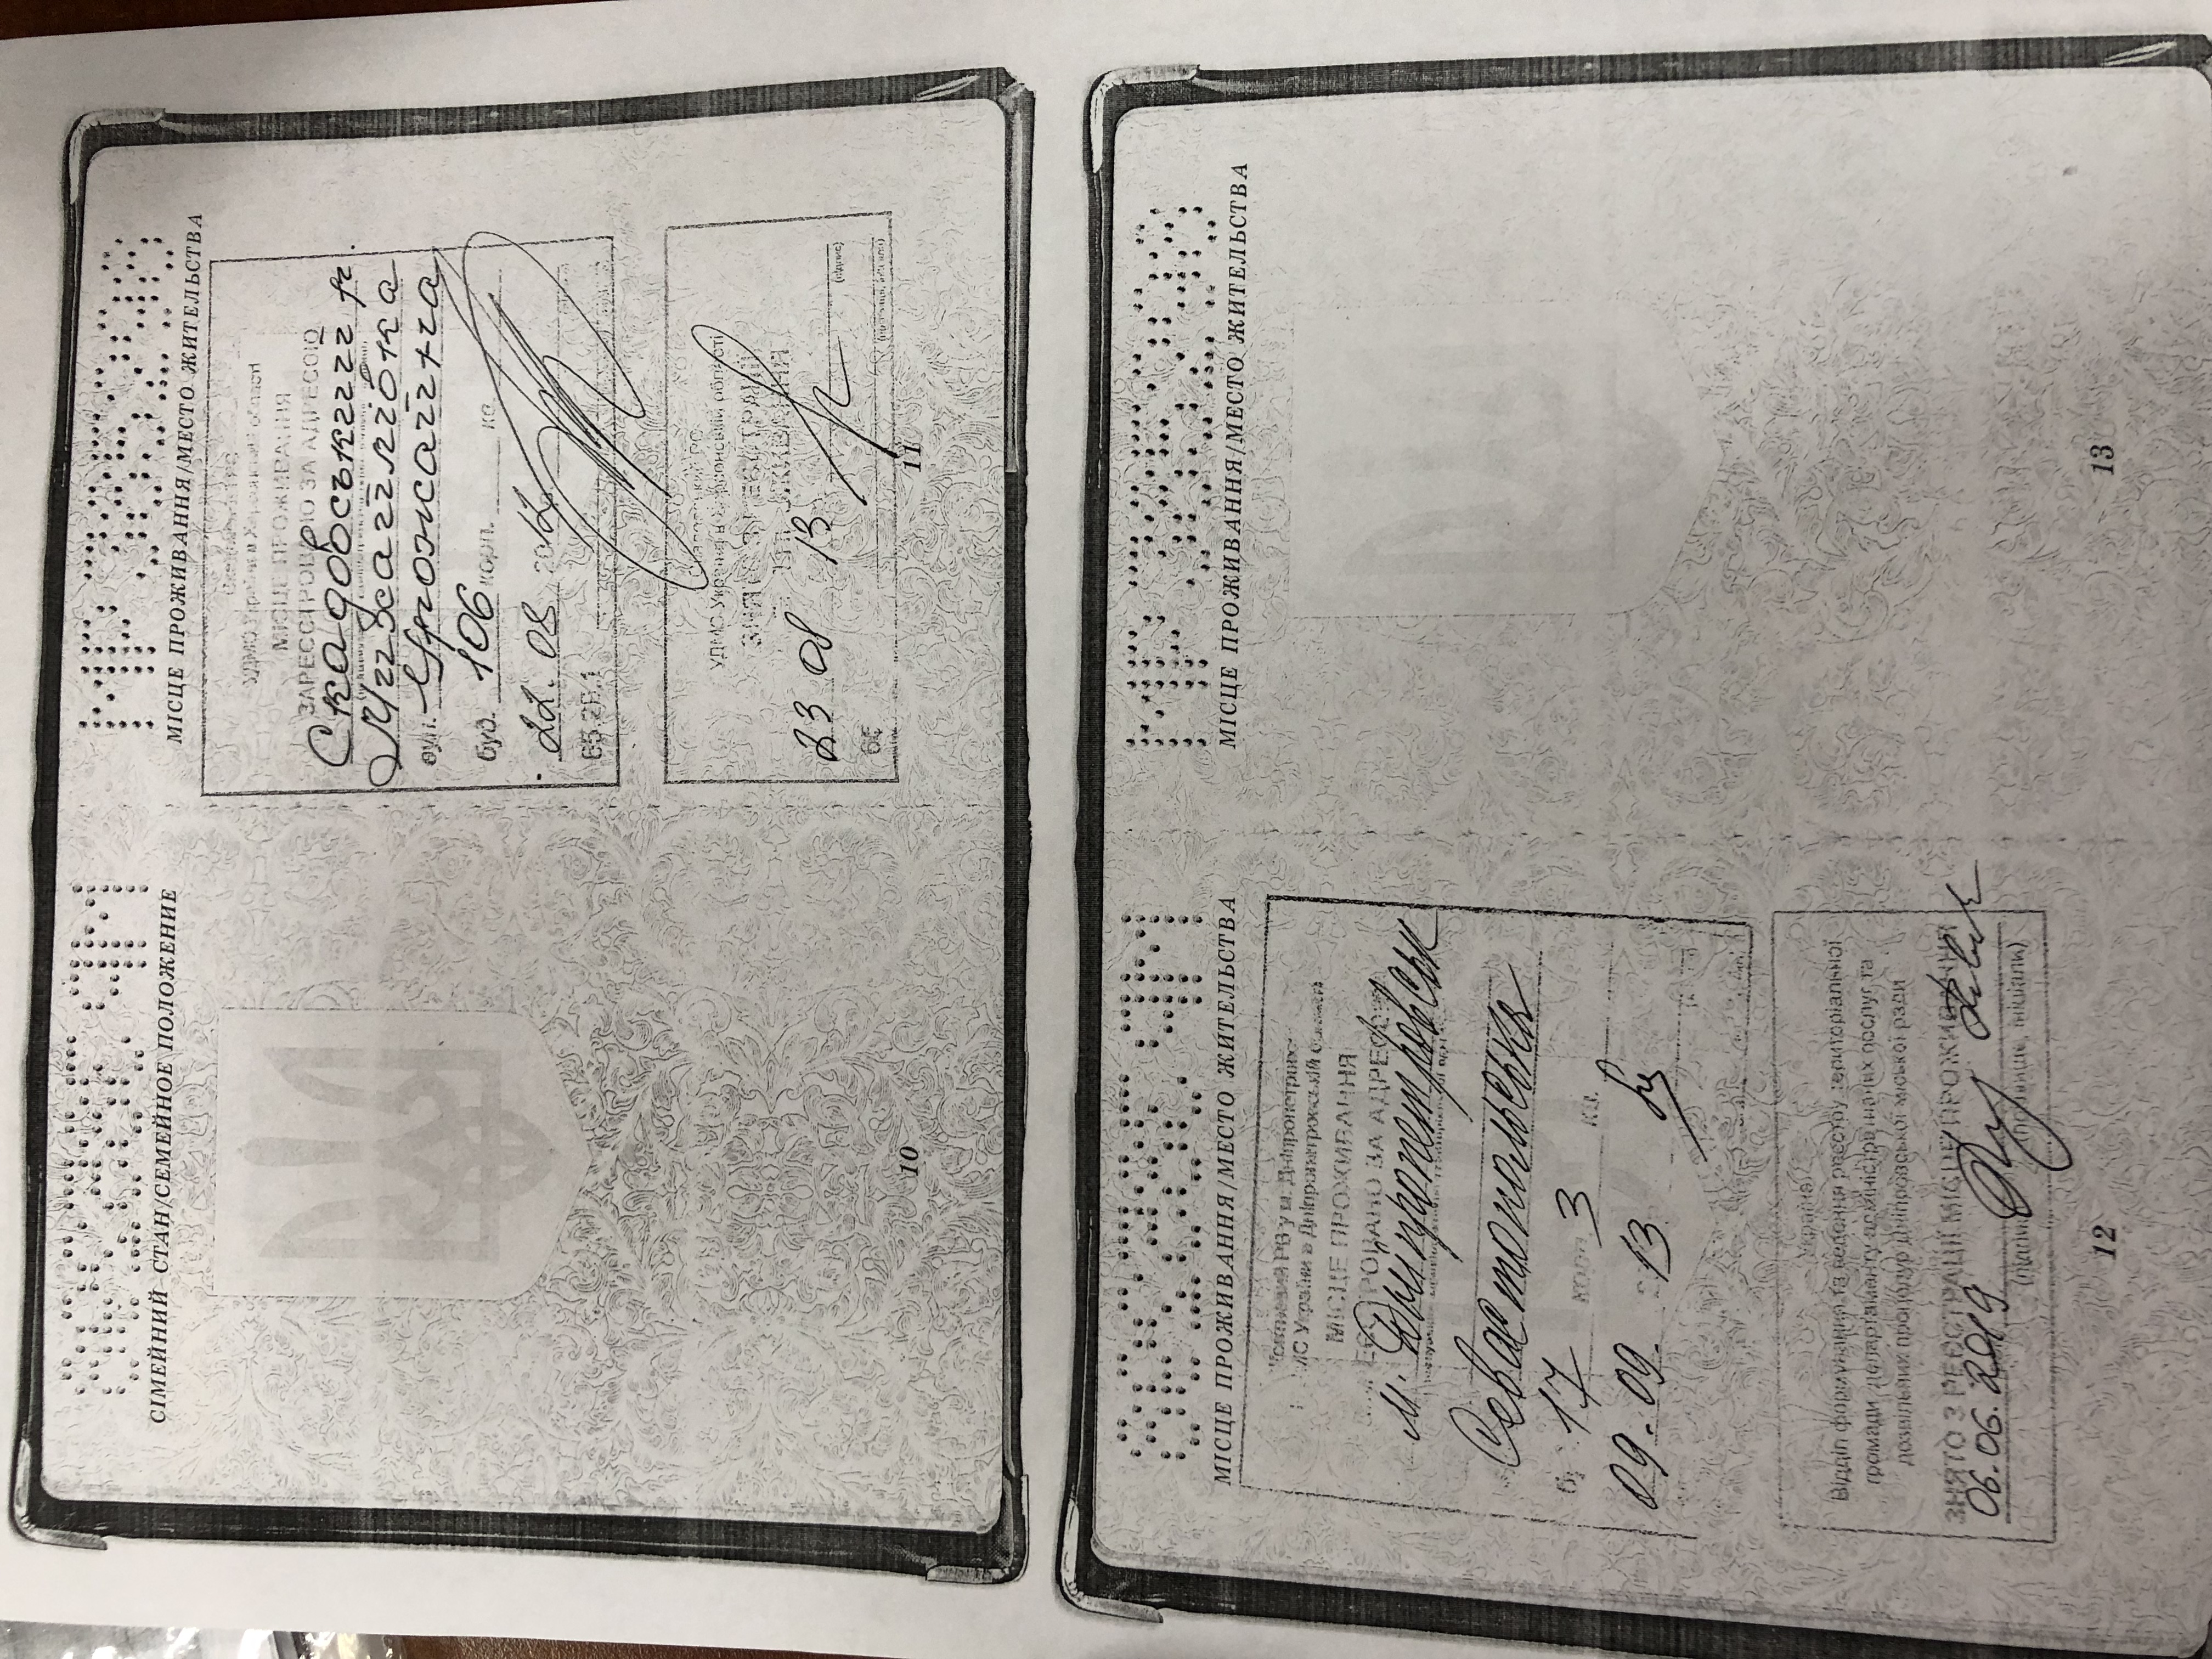 СІМЕЙНИЙ СТАН/СЕМЕЙНОЕ ПОЛОЖЕНИЕ
10
МІСЦЕ ПРОЖИВАННЯ/МЕСТО ЖИТЕЛЬСТВА
УДМС України в Херсонській області
МІСЦЕ ПРОЖИВАННЯ
ЗАРЕЄСТРОВАНО ЗА АДРЕСОЮ
Скадовський р.
Михайлівка
вул. Урожайна
буд. 106 корп. кв.
22. 08 2012
Скадовський РС
УДМС України в Херсонській області
ЗНЯТО З РЕЄСТРАЦІЇ
ПРОЖИВАННЯ
23 08 13
(підпис)
11
МІСЦЕ ПРОЖИВАННЯ/МЕСТО ЖИТЕЛЬСТВА
Жовтневий РВ у м. Дніпропетровс
МС України в Дніпропетровській області
МІСЦЕ ПРОЖИВАННЯ
ЗАРЕЄСТРОВАНО ЗА АДРЕСОЮ
м. Дніпропетровськ
Севастопольська
17 корп. 3 кв.
09.09. 13
Україна
Відділ формування та ведення реєстру територіальної
громади департаменту адміністративних послуг та
дозвільних процедур Дніпровської міської ради
ЗНЯТО З РЕЄСТРАЦІЇ МІСЦЕ ПРОЖИВАННЯ
06.06.2019
(підпис) (прізвище, ініціали)
12
МІСЦЕ ПРОЖИВАННЯ/МЕСТО ЖИТЕЛЬСТВА
13